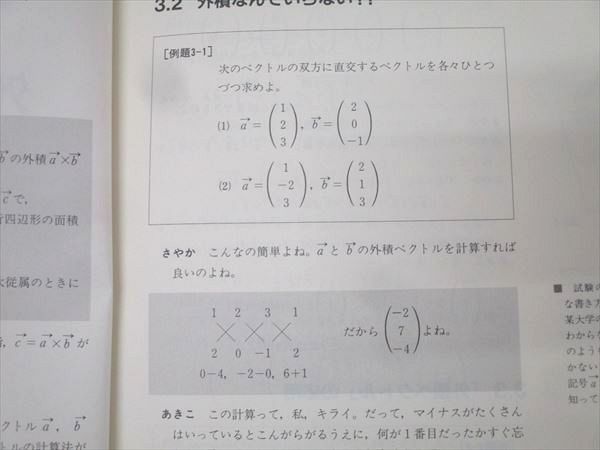 3.2 外積なんていらない？！
[例題3-1]
次のベクトルの双方に直交するベクトルを各々ひとつ
づつ求めよ。
(1) a→ = (1 2 3), b→ = (2 0 −1)
(2) a→ = (1 −2 3), b→ = (2 1 3)
さやか こんなの簡単よね。a→とb→の外積ベクトルを計算すれば
良いのよね。
1 2 3 1
2 0 −1 2
0−4, −2−0, 6+1
だから (−2 7 −4) よね。
あきこ この計算って，私，キライ。だって，マイナスがたくさん
はいっているとこんがらがるうえに，何が1番目だったかすぐ忘
b→の外積a→×b→
c→で，
行四辺形の面積
従属のときに
c→=a→×b→が
クトルa→，b→
トルの計算法が
■ 試験の
な書き方
某大学の
わからな
のような
かない
記号a→
知って